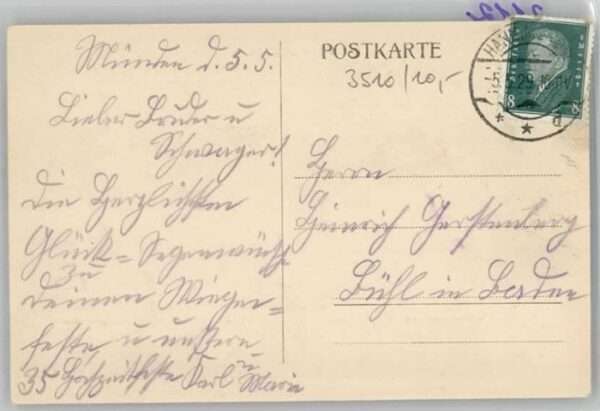 Münden d. 5.5.
Lieber Bruder u
Schwager!
Die Herzlichsten
Glück= Segenwünsche
zu
Deinem Wiegen=
feste u unsern
35 Hochzeitsfeste Karl u Marie
POSTKARTE
3510/10,-
HA
5. 29. 18
8
8
* * d
Herrn
Heinrich Gerstenberg
Bühl in Baden